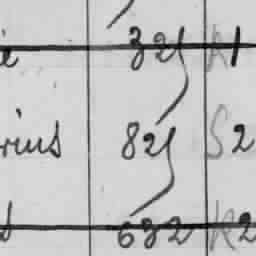 321 R1
rius 821 S2
632 R2